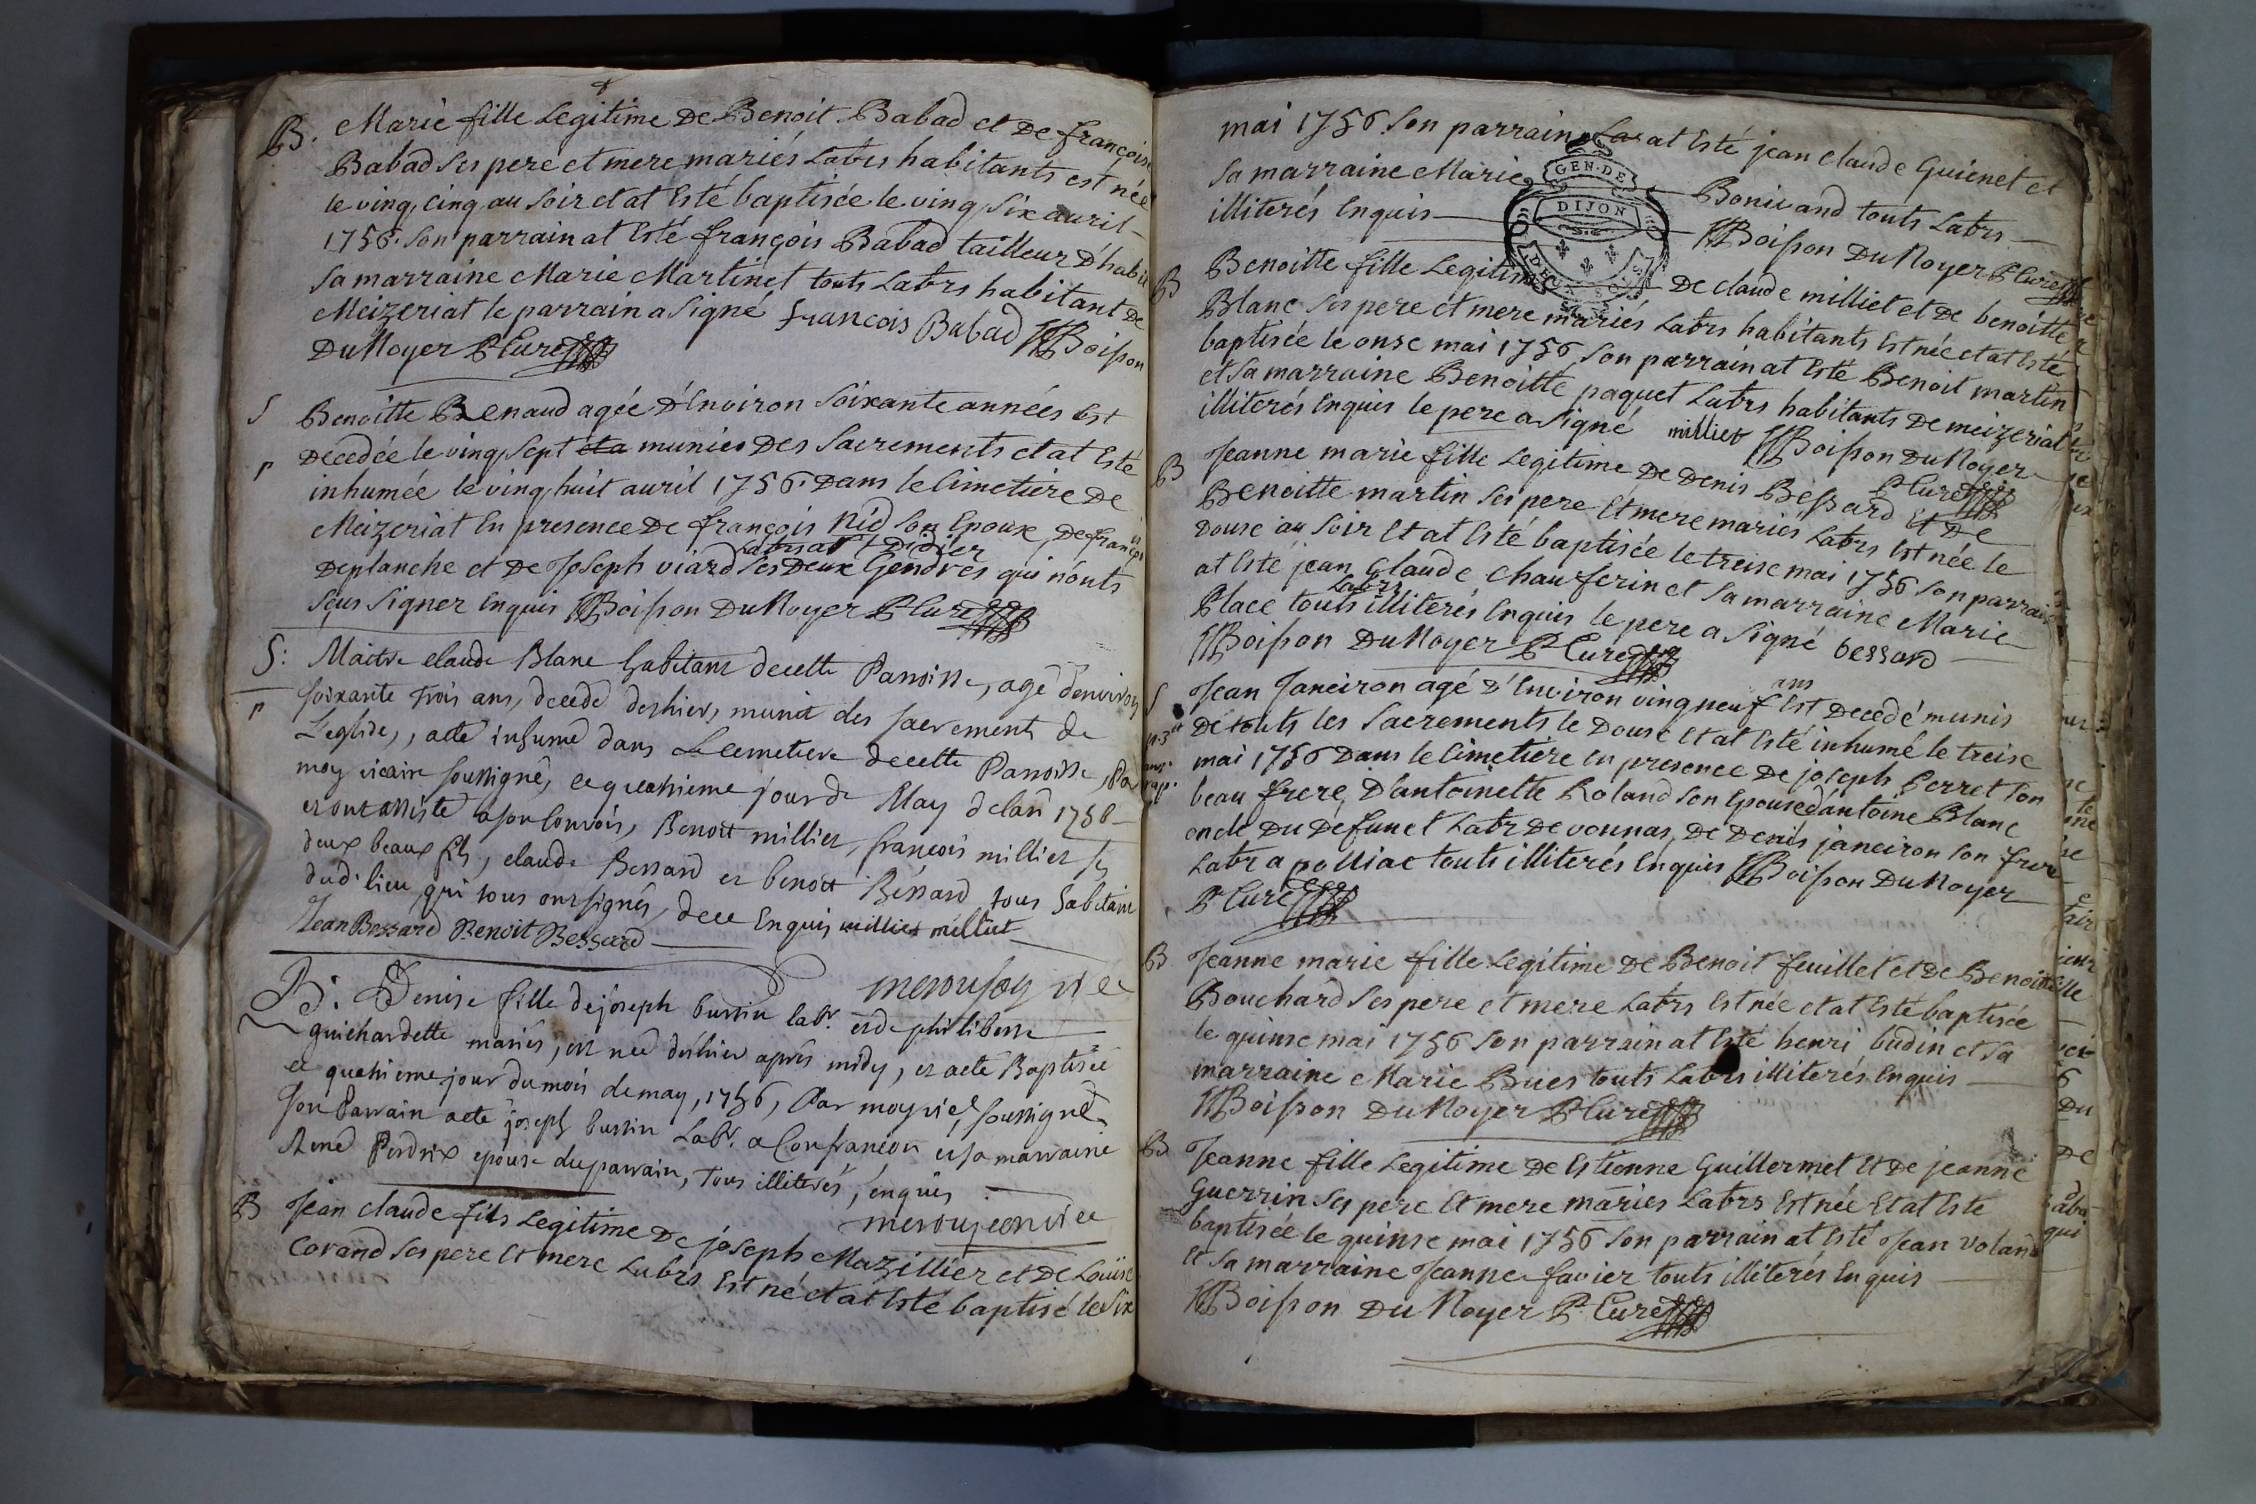 B. Marie fille Legitime De Benoit Babad et De françoise
Babad Ses pere et mere mariés Labrs habitants est née
le vingt cinq au Soir et at Esté baptisée le vingt Six auril
1756. Son parrain at Esté françois Babad tailleur D'habit
Sa marraine Marie Martinet touts Labrs habitant De
Meizeriat le parrain a Signé francois Babad Boisson
Du Noyer Pr Curé
S Benoitte Renaud agée D'Environ Soixante années Est
Decedée le vingt Sept munies Des Sacrements et at Esté
r inhumée le vingt huit auril 1756. Dans le Cimetiere De
Meizeriat En presence De françois Nid Son Epoux, De françois
Deplanche et De Joseph viard Ses Deux Gendres qui n'onts
Sçus Signer Enquis Boisson Du Noyer Pr Curé
S: Maitre claude Blanc habitant decette Parroisse, agé d'environ
r soixante trois ans, decedé deshier, munit des sacrements de
L'eglise, a eté inhumé dans Le cemetiere decette Parroisse, Par
moy vicaire soussigné, ce quatrieme jour de May de l'an 1756
et ont assisté a son Convois, Benoit millier, francois millier ses
deux beaux fils, claude Bessard et benoit Bessard tous habitant
dud. lieu, qui tous ont signés, de ce Enquis milliet milliet
Jean Bessard Benoit Bessard
B: Denise fille de joseph burtin labr. et de philiberte
guichardette mariés, est née deshier après midy, et a eté Baptisée
ce quatrieme jour du mois de may, 1756, Par moy vic. soussigné
son Parrain a eté joseph burtin Labr. a Confrancon et sa marraine
Perdrix epouse du parrain, Tous illiterés, enquis
B Jean claude fils Legitime De joseph Mazillier et De Louise
Corand Ses pere Et mere Labrs Est né et at Esté baptisé le Six
mai 1756. Son parrain at Esté jean claude Guienet et
Sa marraine Marie Boniuand touts Labrs
illiterés Enquis Boisson Du Noyer Pr Curé
GEN. DE
DIJON
DEUX SOLS
B Benoitte fille Legitime De claude milliet et De benoitte
Blanc Ses pere et mere mariés Labrs habitants Est née et at Esté
baptisée le onse mai 1756 Son parrain at Esté Benoit martin
et Sa marraine Benoitte paquet Labrs habitants De meizeriat
illiterés Enquis le pere a Signé milliet Boisson Du Noyer
Pr Curé
B Jeanne marie fille Legitime De Denis Bessard Et De
Benoitte martin Ses pere Et mere mariés Labrs Est née le
Douse au Soir Et at Esté baptisée le treise mai 1756 Son parrain
at Esté jean Claude Chauferin et Sa marraine Marie
Place touts Labrs illiterés Enquis le pere a Signé bessard
Boisson Du Noyer Pr Curé
S Jean Janeiron agé D'Environ vingt neuf ans Est Decedé munis
De touts les Sacrements le Douse Et at Esté inhumé le treise
mai 1756 Dans le Cimetiere En presence De joseph Perret Son
beau frere, D'antoinette Roland Son Epouse d'antoine Blanc
oncle Du Defunct Labr De vonnas, De Denis janeiron Son frere
Labr a polliac touts illiterés Enquis Boisson Du Noyer
Pr Curé
B Jeanne marie fille Legitime De Benoit feuillet et De Benoitte
Bouchard Ses pere et mere Labrs Est née et at Esté baptisée
le quinse mai 1756 Son parrain at Esté henri budin et Sa
marraine Marie Bues touts Labrs illiterés Enquis
Boisson Du Noyer Pr Curé
B Jeanne fille Legitime De Estienne Guillermet Et De jeanne
Guerrin Ses pere Et mere mariés Labrs Est née Et at Esté
baptisée le quinse mai 1756 Son parrain at Esté Jean Voland
Et Sa marraine Jeanne favier touts illiterés Enquis
Boisson Du Noyer Pr Curé